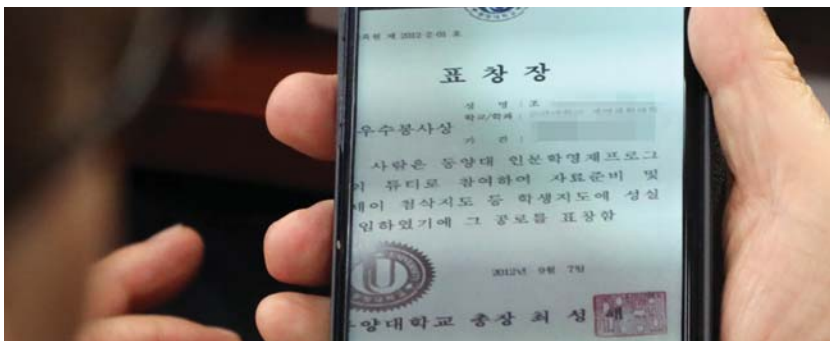 제 2012-2-01 호
표 창 장
성 명 : 조
학교/학과 :
우수봉사상
기 간 :
사람은 동양대 인문학영재프로그
튜터로 참여하여 자료준비 및
첨삭지도 등 학생지도에 성실
임하였기에 그 공로를 표창함
2012년 9월 7일
양대학교 총장 최 성